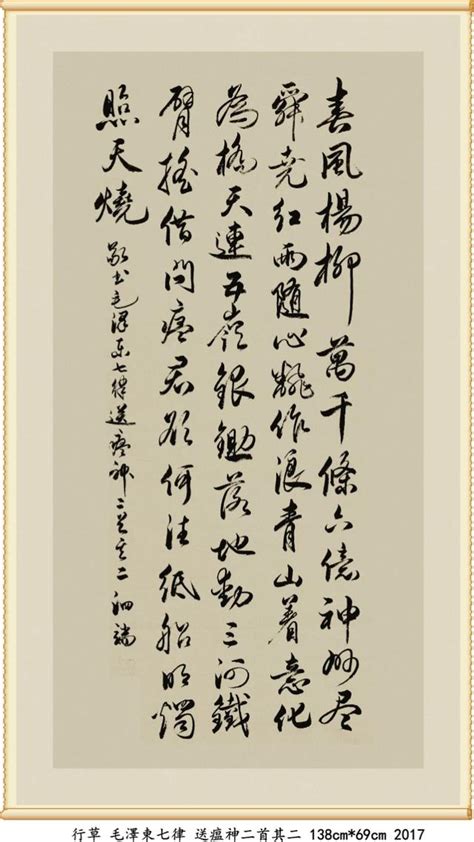 春風楊柳萬千條六億神州尽
舜尭紅雨随心翻作浪青山着意化
為橋天連五嶺銀鋤落地動三河鐵
臂搖借問瘟君欲何往紙船明燭
照天燒
敬书毛澤东七律送瘟神二首其二
行草 毛澤東七律 送瘟神二首其二 138cm*69cm 2017